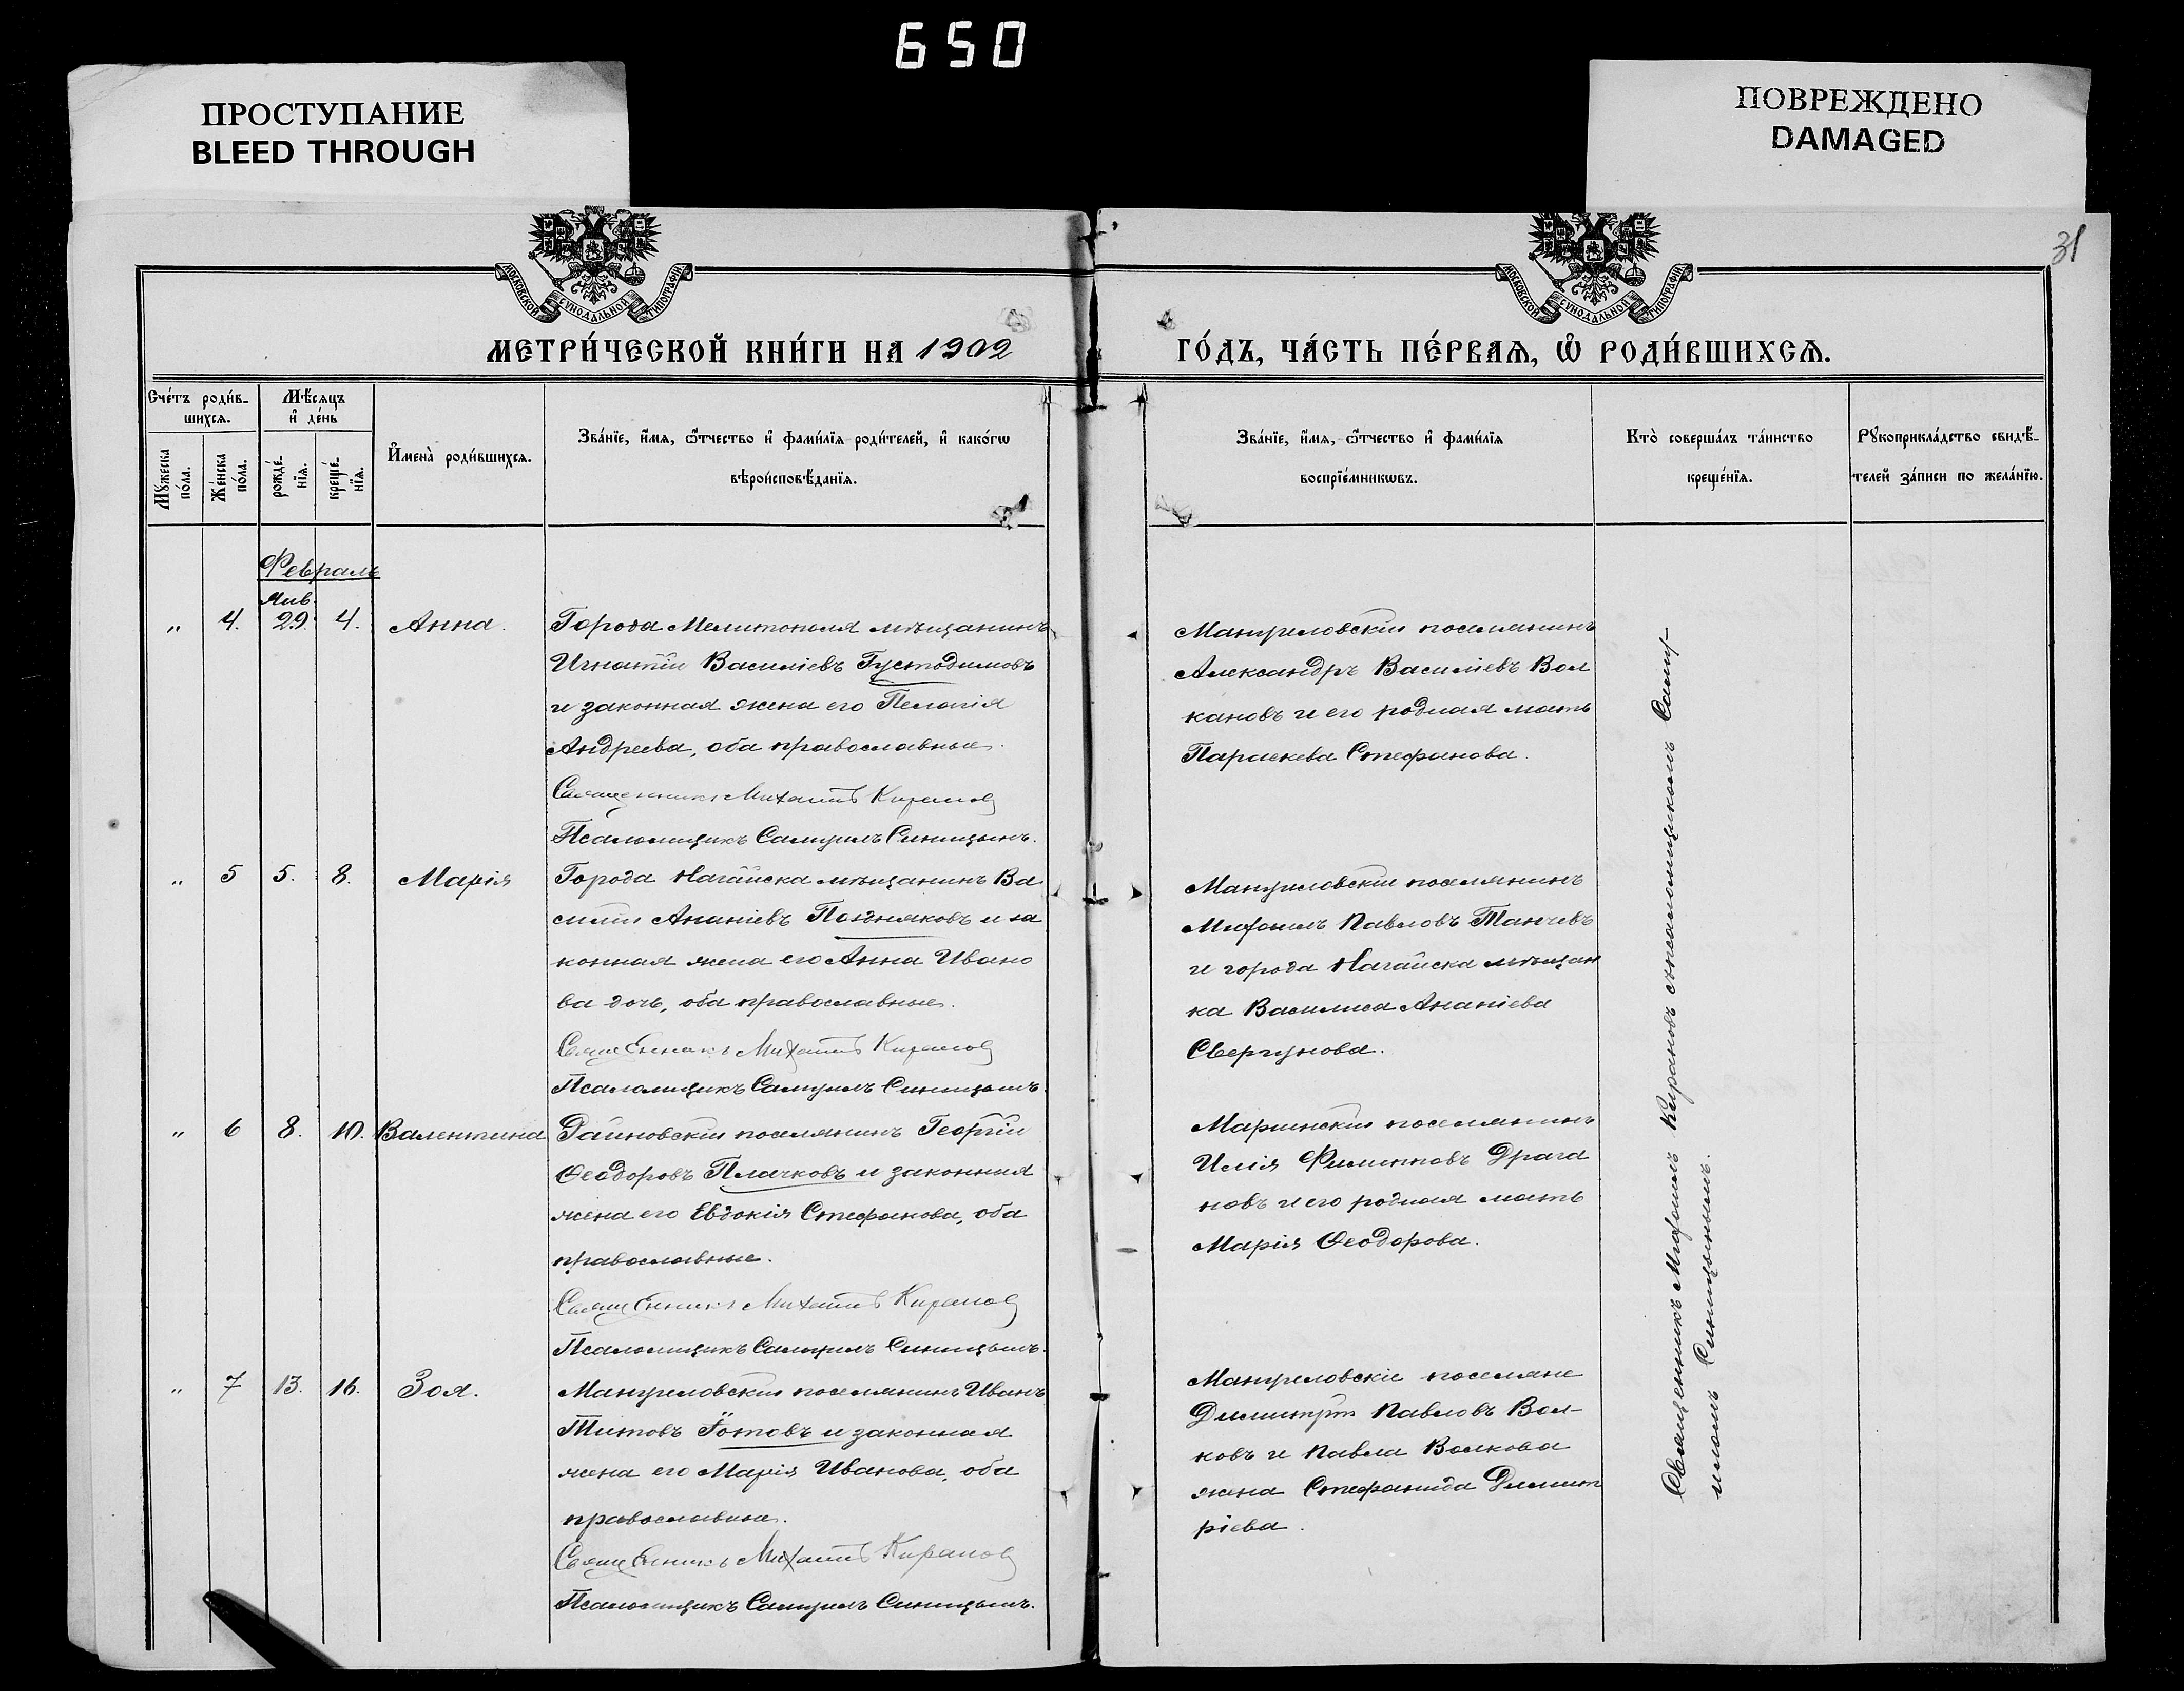 650
ПРОСТУПАНИЕ
BLEED THROUGH
ПОВРЕЖДЕНО
DAMAGED
31
МОСКОВСКОЙ СУНОДАЛЬНОЙ ТИПОГРАФІИ
МОСКОВСКОЙ СУНОДАЛЬНОЙ ТИПОГРАФІИ
МЕТРИ́ЧЕСКОЙ КНИ́ГИ НА 1902
ГО́ДЪ, ЧА́СТЬ ПЕ́РВАЯ, Ѽ РОДИ́ВШИХСЯ.
Сче́тъ роди́в-
шихся.
Мѣ́сяцъ
и҆ де́нь
Мꙋ́жеска
по́ла.
Же́нска
по́ла.
рожде́-
нїя.
креще́-
нїя.
И҆мена̀ роди́вшихся.
Зва́нїе, и҆́мя, ѻ҆́тчество и҆ фами́лїя роди́телей, и҆ како́гѡ
вѣроисповѣ́данїя.
Зва́нїе, и҆́мя, ѻ҆́тчество и҆ фами́лїя
воспрїе́мникѡвъ.
Кто̀ соверша́лъ та́инство
креще́нїя.
Рꙋкоприкла́дство свидѣ́-
телей за́писи по жела́нїю.
Февраль
Янв.
„ 4. 29. 4. Анна.
Города Мелитополя мѣщанинъ
Игнатій Василіевъ Густодимовъ
и законная жена его Пелагія
Андреева, оба православные.
Священникъ Михаилъ Киранов
Псаломщикъ Самуилъ Синицынъ.
Мануиловскій поселянинъ
Александръ Василіевъ Вол
кановъ и его родная мать
Параскева Стефанова.
„ 5 5. 8. Марія
Города Нагайска мѣщанинъ Ва
силій Ананіевъ Поздняковъ и за
конная жена его Анна Ивано
ва дочь, оба православные.
Священникъ Михаилъ Киранов
Псаломщикъ Самуилъ Синицынъ.
Мануиловскій поселянинъ
Михаилъ Павловъ Танчевъ
и города Нагайска мѣщан
ка Василиса Ананіева
Свергунова.
„ 6 8. 10. Валентина
Райновскій поселянинъ Георгій
Ѳеодоровъ Плачковъ и законная
жена его Евдокія Стефанова, оба
православные.
Священникъ Михаилъ Киранов
Псаломщикъ Самуилъ Синицынъ.
Маріинскій поселянинъ
Илія Филипповъ Драга
новъ и его родная мать
Марія Ѳеодорова.
„ 7 13. 16. Зоя.
Мануиловскій поселянинъ Иванъ
Титовъ Іотовъ и законная
жена его Марія Иванова, оба
православные.
Священникъ Михаилъ Киранов
Псаломщикъ Самуилъ Синицынъ.
Мануиловскіе поселяне
Димитрій Павловъ Вол-
ковъ и Павла Волкова
жена Стефанида Димит
ріева.
Священникъ Михаилъ Кирановъ съ псаломщикомъ Саму-
иломъ Синицынымъ.